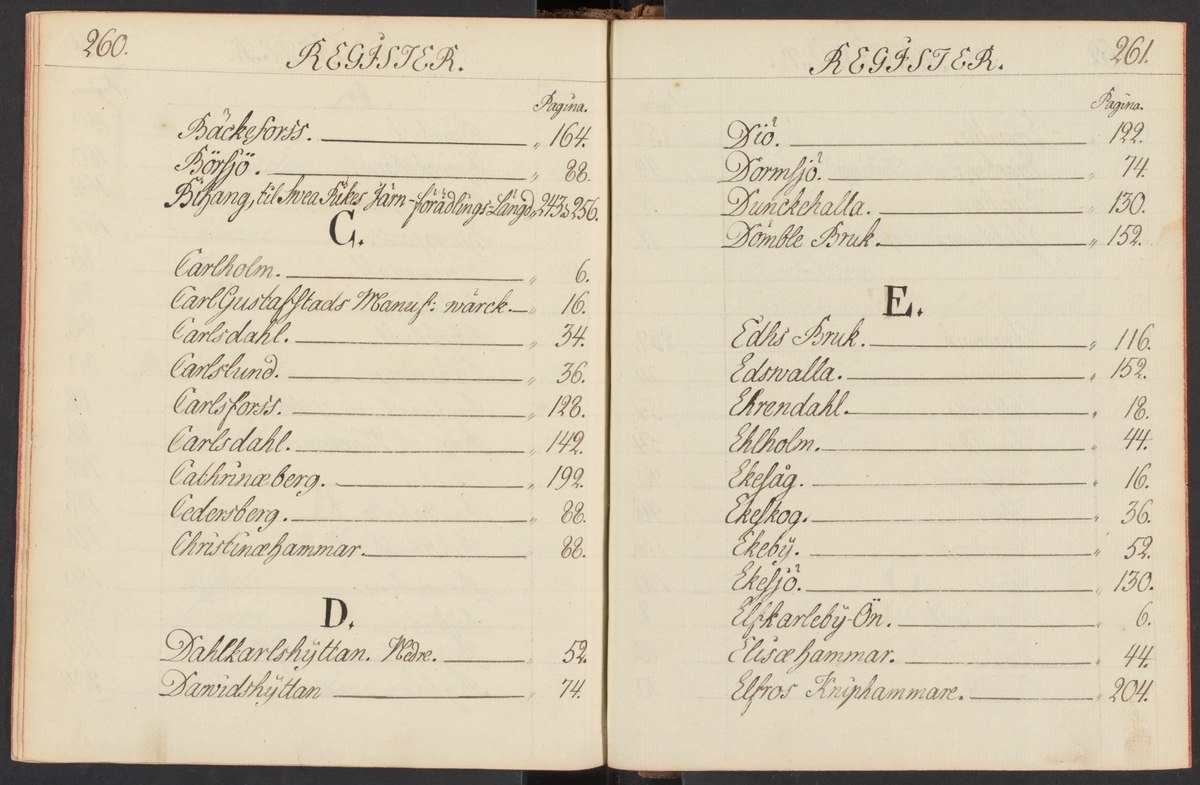 260.
REGISTER.
Pagina.
Bäckeforss. „ 164.
Börsjö. „ 88.
Bihang, til Swea Rikes Järn-förädlings-Längd „ 243 à 256.
C.
Carlholm. „ 6.
CarlGustafsstads Manuf: wärck. „ 16.
Carlsdahl. „ 34.
Carlslund. „ 36.
Carlsforss. „ 128.
Carlsdahl. „ 142.
Cathrinæberg. „ 192.
Cedersberg. „ 88.
Christinæhammar. „ 88.
D.
Dahlkarlshÿttan. Nedre. „ 52.
Dawidshÿttan „ 74.
261.
REGISTER.
Pagina.
Diö. „ 122.
Dormsjö. „ 74.
Dunckehalla. „ 130.
Dömble Bruk. „ 152.
E.
Edhs Bruk. „ 116.
Edswalla. „ 152.
Ehrendahl. „ 18.
Ehlholm. „ 44.
Ekesåg. „ 16.
Ekeskog. „ 36.
Ekebÿ. „ 52.
Ekesjö. „ 130.
Elfkarlebÿ-Ön. „ 6.
Elisæhammar. „ 44.
Elfros Kniphammare. „ 204.